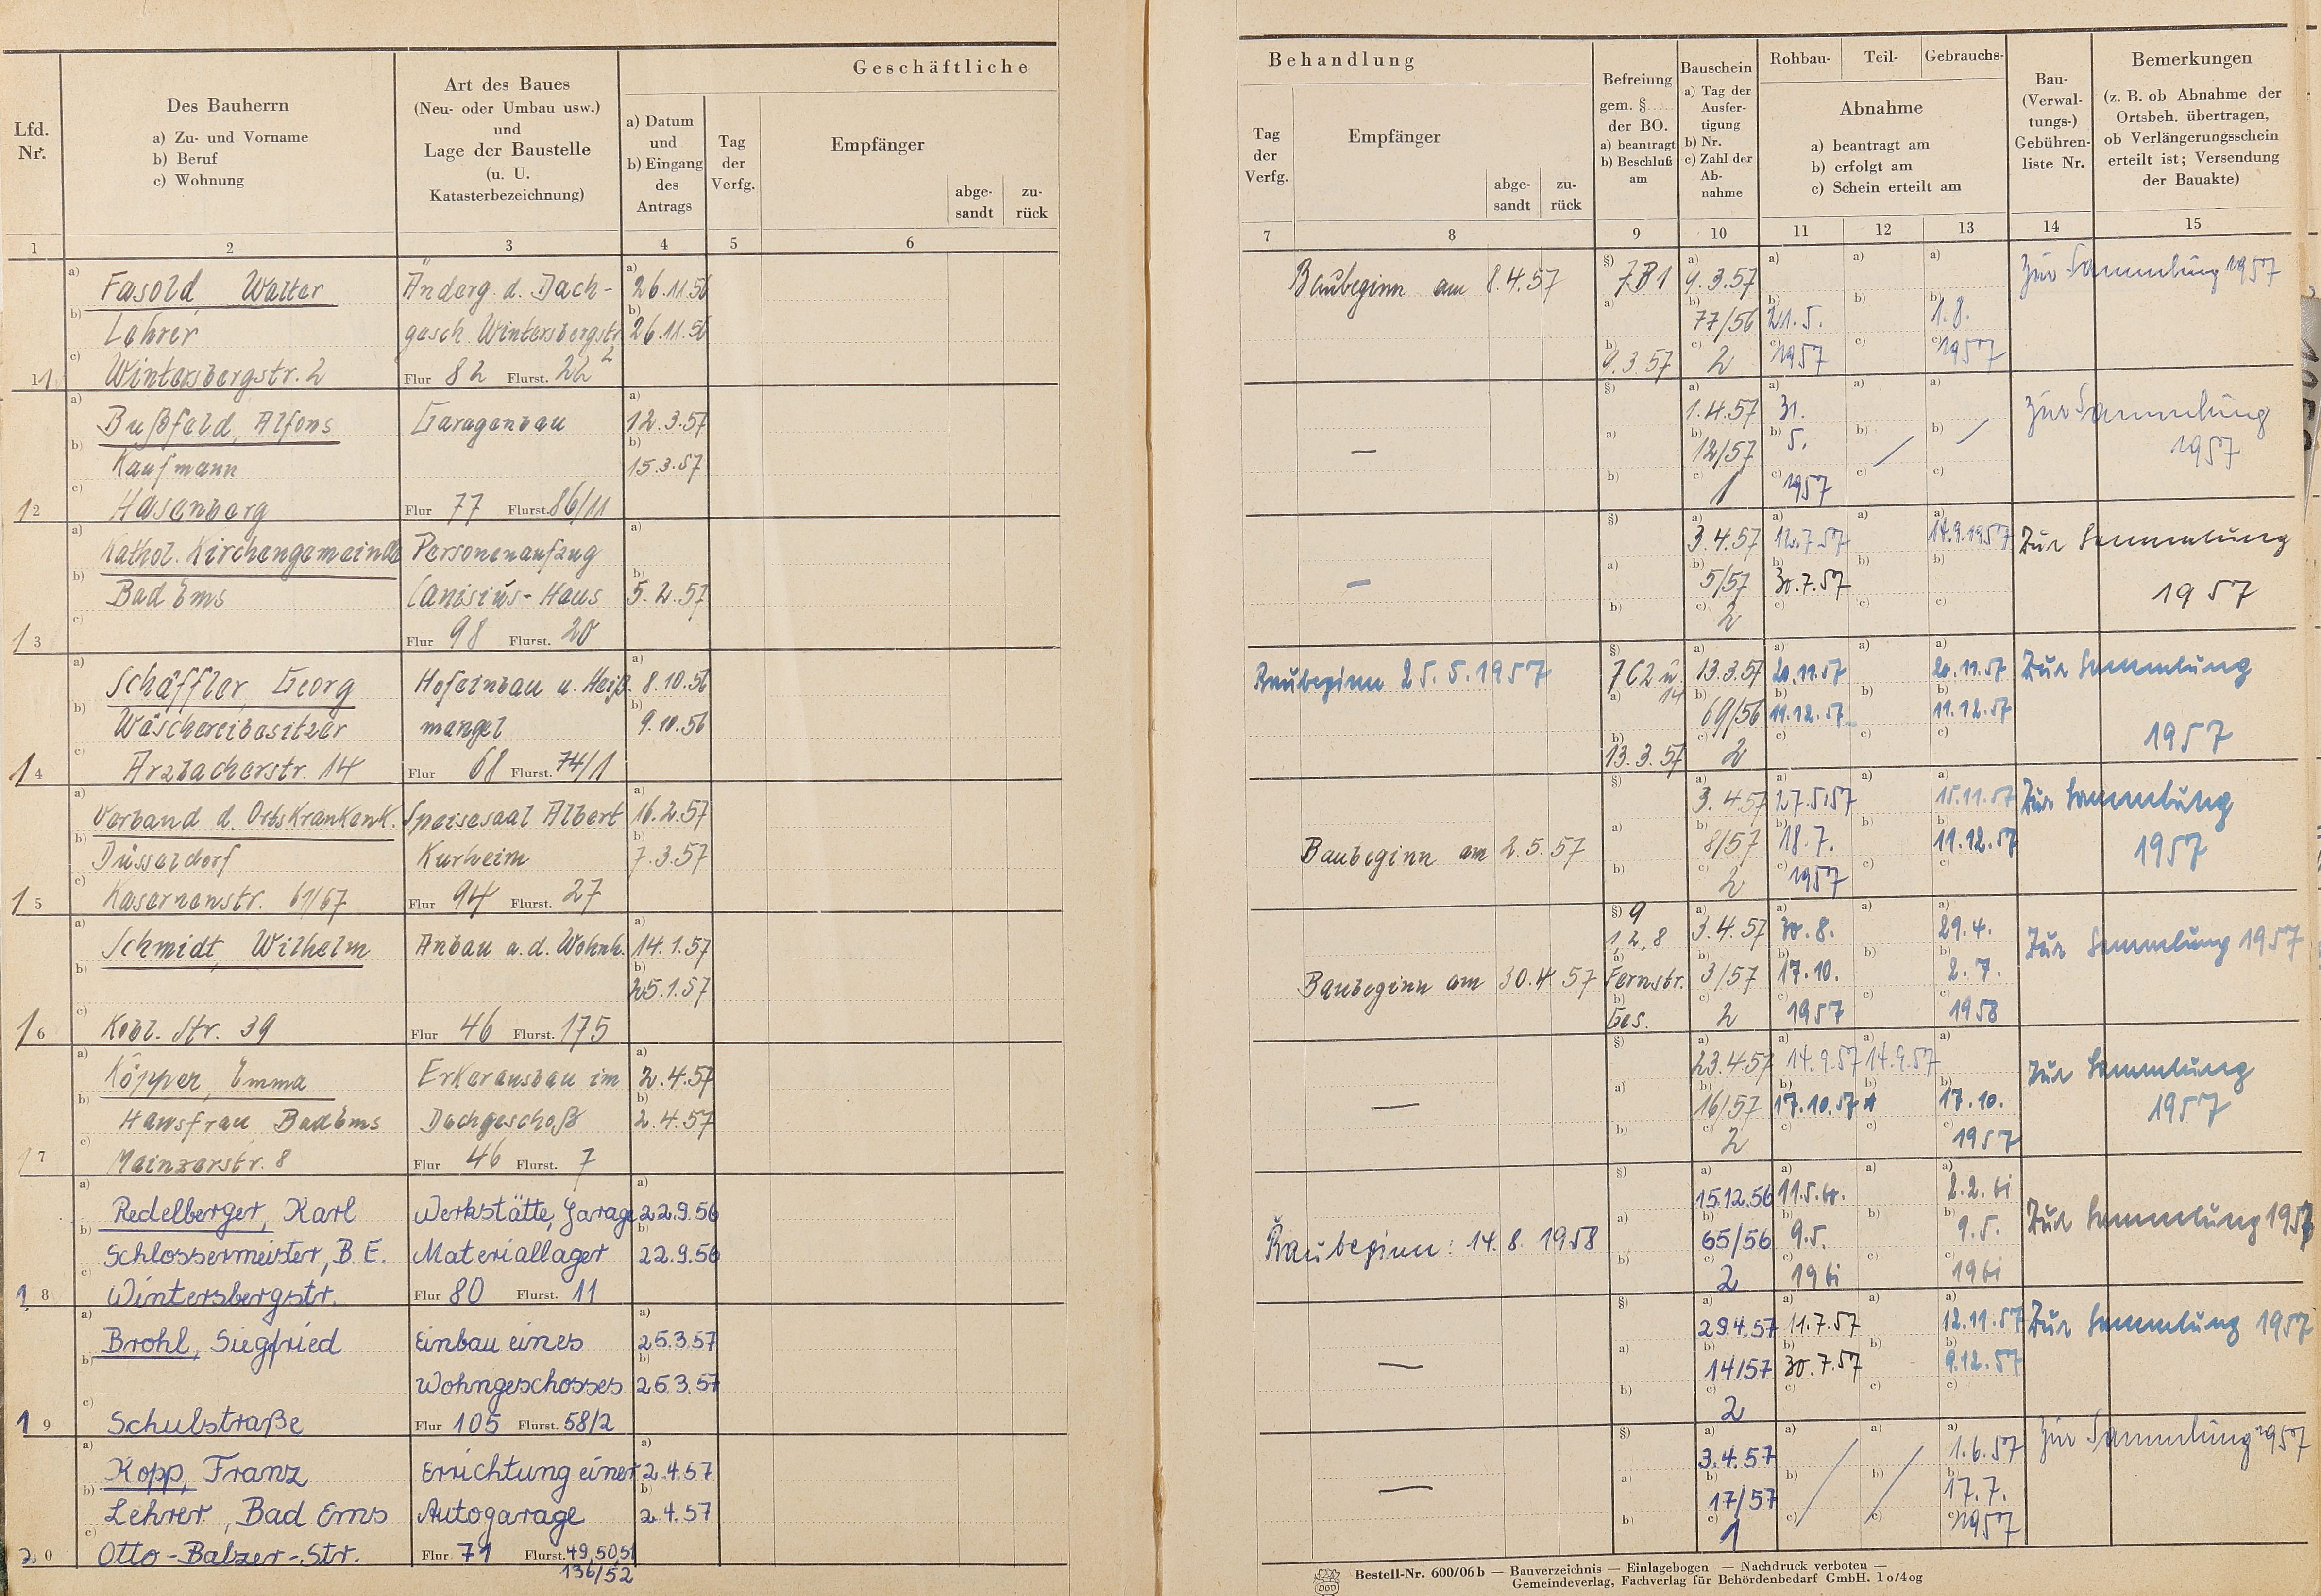 Geschäftliche
Lfd. Nr.
Des Bauherrn
a) Zu- und Vorname
b) Beruf
c) Wohnung
Art des Baues
(Neu- oder Umbau usw.)
und
Lage der Baustelle
(u. U.
Katasterbezeichnung)
a) Datum
und
b) Eingang
des
Antrags
Tag
der
Verfg.
Empfänger
abge-
sandt
zu-
rück
1 2 3 4 5 6
a) Fasold, Walter Änderg. d. Dach- a) 26.11.56
b) Lehrer gesch. Wintersbergstr. 2 b) 26.11.56
11 c) Wintersbergstr. 2 Flur 82 Flurst. 22
a) Bußfeld, Alfons Garagenbau a) 12.3.57
b) Kaufmann b) 15.3.57
12 c) Hasenberg Flur 77 Flurst. 86/11
a) Kathol. Kirchengemeinde Personenaufzug a)
b) Bad Ems Canisius-Haus b) 5.2.57
13 c) Flur 98 Flurst. 20
a) Schäffler, Georg Hofeinbau u. Heiß- a) 8.10.56
b) Wäschereibesitzer mangel b) 9.10.56
14 c) Arzbacherstr. 14 Flur 68 Flurst. 74/1
a) Verband d. Ortskrankenk. Speisesaal Albert a) 16.2.57
b) Düsseldorf Kurheim b) 7.3.57
15 c) Kasernenstr. 61/67 Flur 94 Flurst. 27
a) Schmidt, Wilhelm Anbau a.d. Wohnh. a) 14.1.57
b) b) 25.1.57
16 c) Kobl. Str. 39 Flur 46 Flurst. 175
a) Köpper, Emma Erkerausbau im a) 2.4.57
b) Hausfrau, Bad Ems Dachgeschoß b) 2.4.57
17 c) Mainzerstr. 8 Flur 46 Flurst. 7
a) Redelberger, Karl Werkstätte, Garage a) 22.9.56
b) Schlossermeister, B.E. Materiallager b) 22.9.56
18 c) Wintersbergstr. Flur 80 Flurst. 11
a) Brohl, Siegfried Einbau eines a) 25.3.57
b) Wohngeschosses b) 25.3.57
19 c) Schulstraße Flur 105 Flurst. 58/2
a) Kopp, Franz Errichtung einer a) 2.4.57
b) Lehrer, Bad Ems Autogarage b) 2.4.57
20 c) Otto-Balzer-Str. Flur 71 Flurst. 49,50,51
136/52
Behandlung
Tag
der
Verfg.
Empfänger
abge-
sandt
zu-
rück
Befreiung
gem. §
der BO.
a) beantragt
b) Beschluß
am
Bauschein
a) Tag der
Ausfer-
tigung
b) Nr.
c) Zahl der
Ab-
nahme
Rohbau- Teil- Gebrauchs-
Abnahme
a) beantragt am
b) erfolgt am
c) Schein erteilt am
Bau-
(Verwal-
tungs-)
Gebühren-
liste Nr.
Bemerkungen
(z. B. ob Abnahme der
Ortsbeh. übertragen,
ob Verlängerungsschein
erteilt ist; Versendung
der Bauakte)
7 8 9 10 11 12 13 14 15
Baubeginn am 8.4.57 §) 7B1 a) 9.3.57 a) a) a) Zur Sammlung 1957
a) b) 77/56 b) 21.5. b) b) 1.8.
b) 9.3.57 c) 2 c) 1957 c) c) 1957
§) a) 1.4.57 a) 31. a) a) Zur Sammlung
— a) b) 12/57 b) 5. b) / b) / 1957
b) c) 1 c) 1957 c) c)
§) a) 3.4.57 a) 12.7.57 a) a) 14.9.1957 Zur Sammlung
— a) b) 5/57 b) 30.7.57 b) b) 1957
b) c) 2 c) c) c)
Baubeginn 25.5.1957 §) 7C2 u. 14 a) 13.3.57 a) 20.11.57 a) a) 20.11.57 Zur Sammlung
a) b) 69/56 b) 11.12.57 b) b) 11.12.57 1957
b) 13.3.57 c) 2 c) c) c)
§) a) 3.4.57 a) 27.5.57 a) a) 15.11.57 Zur Sammlung
Baubeginn am 2.5.57 a) b) 8/57 b) 18.7. b) b) 11.12.57 1957
b) c) 2 c) 1957 c) c)
§) 9 1,2,8 a) 3.4.57 a) 30.8. a) a) 29.4. Zur Sammlung 1957
Baubeginn am 30.4.57 a) Fernstr. b) 3/57 b) 17.10. b) b) 2.7.
b) Ges. c) 2 c) 1957 c) c) 1958
§) a) 23.4.57 a) 14.9.57 a) 14.9.57 a) Zur Sammlung
— a) b) 16/57 b) 17.10.57 b) b) 17.10. 1957
b) c) 2 c) c) c) 1957
§) a) 15.12.56 a) a) a) 2.2.61 Zur Sammlung 1957
Baubeginn: 14.8.1958 a) b) 65/56 b) 9.5. b) b) 9.5.
b) c) 2 c) 1961 c) c) 1961
§) a) 29.4.57 a) 11.7.57 a) a) 12.11.57 Zur Sammlung 1957
— a) b) 14/57 b) 30.7.57 b) b) 9.12.57
b) c) 2 c) c) c)
§) a) 3.4.57 a) a) a) 1.6.57 Zur Sammlung 1957
— a) b) 17/57 b) / b) / b) 17.7.
b) c) 1 c) c) c) 1957
Bestell-Nr. 600/06b — Bauverzeichnis — Einlagebogen — Nachdruck verboten —
Gemeindeverlag, Fachverlag für Behördenbedarf GmbH. 10/40g